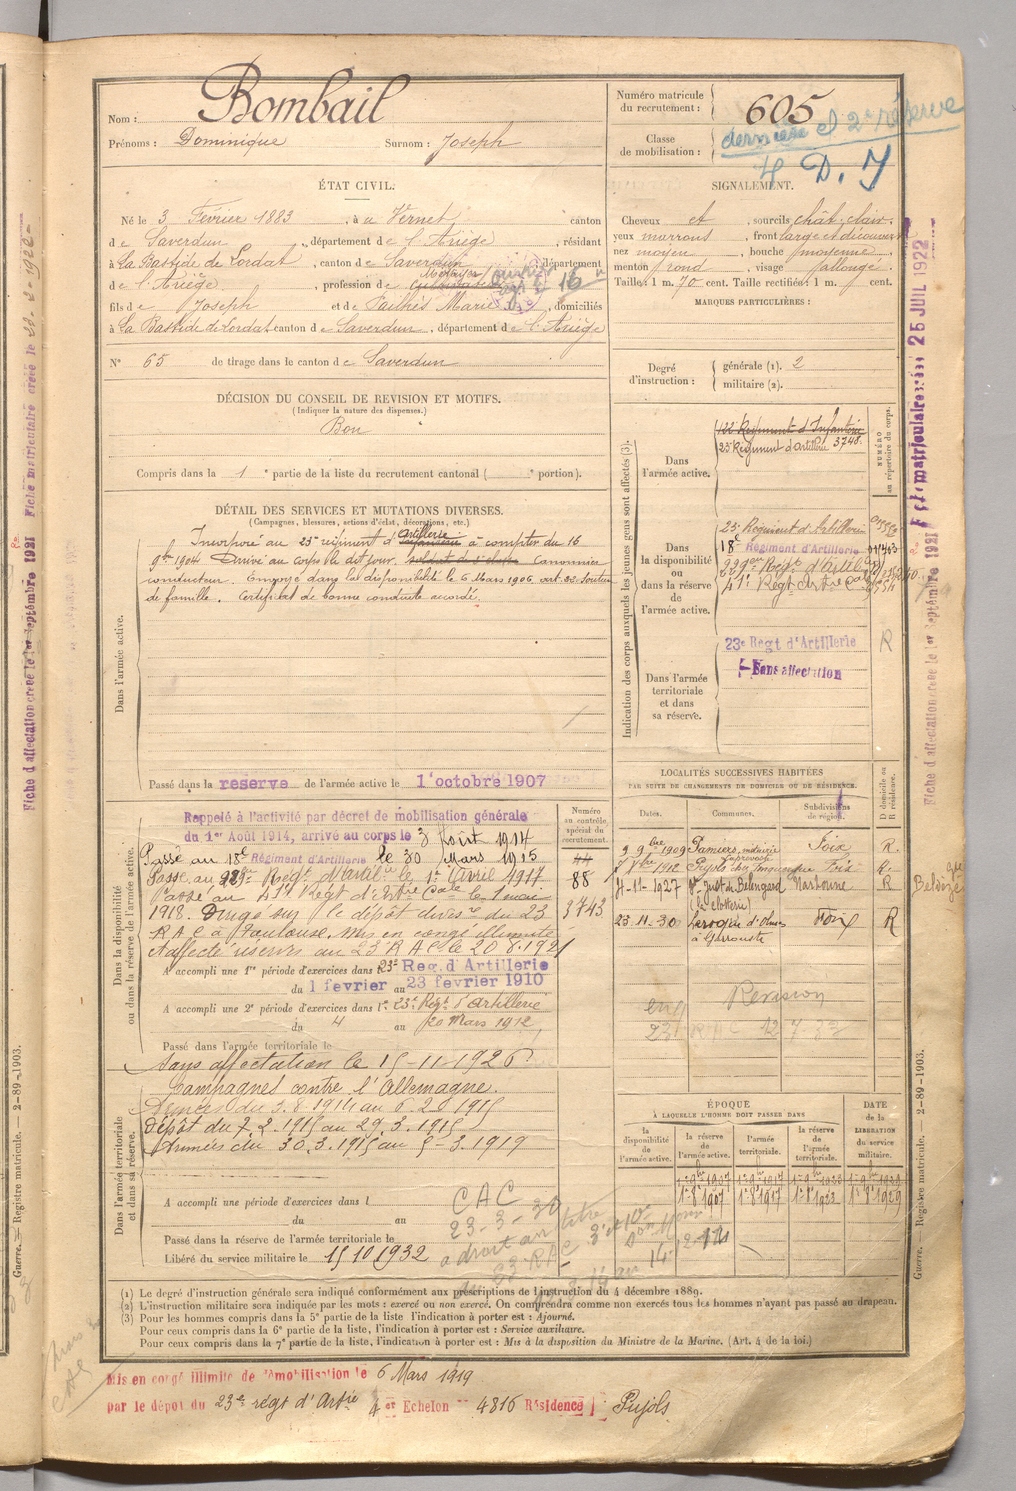 Nom : Bombail
Prénoms : Dominique Surnom : Joseph
Numéro matricule du recrutement : 605
Classe de mobilisation :
dernière et 2e réserve
D.
ÉTAT CIVIL.
Né le 3 Février 1883, à u Vernet, canton
de Saverdun, département de l'Ariège, résidant
à La Bastide de Lordat, canton de Saverdun, département
de l'Ariège, profession de
fils de Joseph et de Pailhès Marie, domiciliés
à La Bastide de Lordat canton de Saverdun, département de l'Ariège
N° 65 de tirage dans le canton de Saverdun
SIGNALEMENT.
Cheveux et, sourcils chât. clair
yeux marrons, front large et découvert
nez moyen, bouche moyenne
menton rond, visage allongé
Taille : 1 m. 70 cent. Taille rectifiée : 1 m. cent.
MARQUES PARTICULIÈRES :
Degré d'instruction : générale (1). 2
militaire (2).
DÉCISION DU CONSEIL DE REVISION ET MOTIFS.
(Indiquer la nature des dispenses.)
Bon
Compris dans la 1e partie de la liste du recrutement cantonal ( portion).
DÉTAIL DES SERVICES ET MUTATIONS DIVERSES.
(Campagnes, blessures, actions d'éclat, décorations, etc.)
Dans l'armée active.
Incorporé au 23e régiment d'artillerie à compter du 16
9bre 1904 Arrivé au corps le dit jour, canonnier
conducteur. Envoyé dans la disponibilité le 6 Mars 1906 art. 83. Soutien
de famille. Certificat de bonne conduite accordé.
Passé dans la réserve de l'armée active le 1er octobre 1907
Indication des corps auxquels les jeunes gens sont affectés (3).
NUMÉRO au répertoire du corps.
Dans l'armée active.
122e Régiment d'Infanterie
23e Régiment d'artillerie 3748
Dans la disponibilité ou dans la réserve de l'armée active.
23e Régiment d'Artillerie
18e Régiment d'Artillerie
41e Régt. Artie Cale
23e Régt d'Artillerie R
Sans affectation
Dans l'armée territoriale et dans sa réserve.
Dans la disponibilité ou dans la réserve de l'armée active.
Rappelé à l'activité par décret de mobilisation générale
du 1er Août 1914, arrivé au corps le 3 Août 1914
Passé au 18e Régiment d'Artillerie le 30 Mars 1915
Passé au Régt d'Artilrie le 1er Avril 1917
Passé au 41e Régt d'Artie Cale le 1 mai
1918. Dirigé sur le dépôt du 23
RAC à Toulouse. Mis en congé illimité
Affecté réserves au 23 RAC le 20.8.1921
A accompli une 1re période d'exercices dans le 23e Rég. d'Artillerie
du 1 février au 23 février 1910
A accompli une 2e période d'exercices dans le 23e Régt d'Artillerie
du 4 au 20 Mars 1912
Passé dans l'armée territoriale le
sans affectation le 15-11-1926
Numéro au contrôle spécial du recrutement.
44
88
3743
LOCALITÉS SUCCESSIVES HABITÉES
PAR SUITE DE CHANGEMENTS DE DOMICILE OU DE RÉSIDENCE.
Dates. Communes. Subdivisions de région. D domicile ou R résidence.
9 9bre 1909 Pamiers, Foix R.
1912 Pujols Foix R.
4-11-1927 St. Just de Belengard Narbonne R
23.11-30 Laroque d'Olmes Foix R
Revision
Dans l'armée territoriale et dans sa réserve.
Campagnes contre l'Allemagne.
Armées du 3.8.1914 au 6.2.1915
dépôt du 7.2.1915 au 29.3.1915
Armées du 30.3.1915 au 5-3.1919
A accompli une période d'exercices dans l
du au
Passé dans la réserve de l'armée territoriale le
Libéré du service militaire le 15 10 1932
CAC
23-3-30
a droit au titre
ÉPOQUE
À LAQUELLE L'HOMME DOIT PASSER DANS
la disponibilité de l'armée active. la réserve de l'armée active. l'armée territoriale. la réserve de l'armée territoriale.
DATE de la LIBÉRATION du service militaire.
1er 8 1907 1er 8 1917 1er 8 1923 1er 8 1929
(1) Le degré d'instruction générale sera indiqué conformément aux prescriptions de l'instruction du 4 décembre 1889.
(2) L'instruction militaire sera indiquée par les mots : exercé ou non exercé. On comprendra comme non exercés tous les hommes n'ayant pas passé au drapeau.
(3) Pour les hommes compris dans la 5e partie de la liste l'indication à porter est : Ajourné.
Pour ceux compris dans la 6e partie de la liste, l'indication à porter est : Service auxiliaire.
Pour ceux compris dans la 7e partie de la liste, l'indication à porter est : Mis à la disposition du Ministre de la Marine. (Art. 4 de la loi.)
Mis en congé illimité de démobilisation le 6 Mars 1919
par le dépôt du 23e régt d'Artie 4 er Echelon 4816 Résidence Pujols
Fiche d'affectation créée le 1er Septembre 1921
Fiche matriculaire créée le
Fiche matriculaire créée 25 JUIL 1922
Fiche d'affectation créée le 1er Septembre 1921
Guerre. — Registre matricule. — 2-89-1903.
Guerre. — Registre matricule. — 2-89-1903.